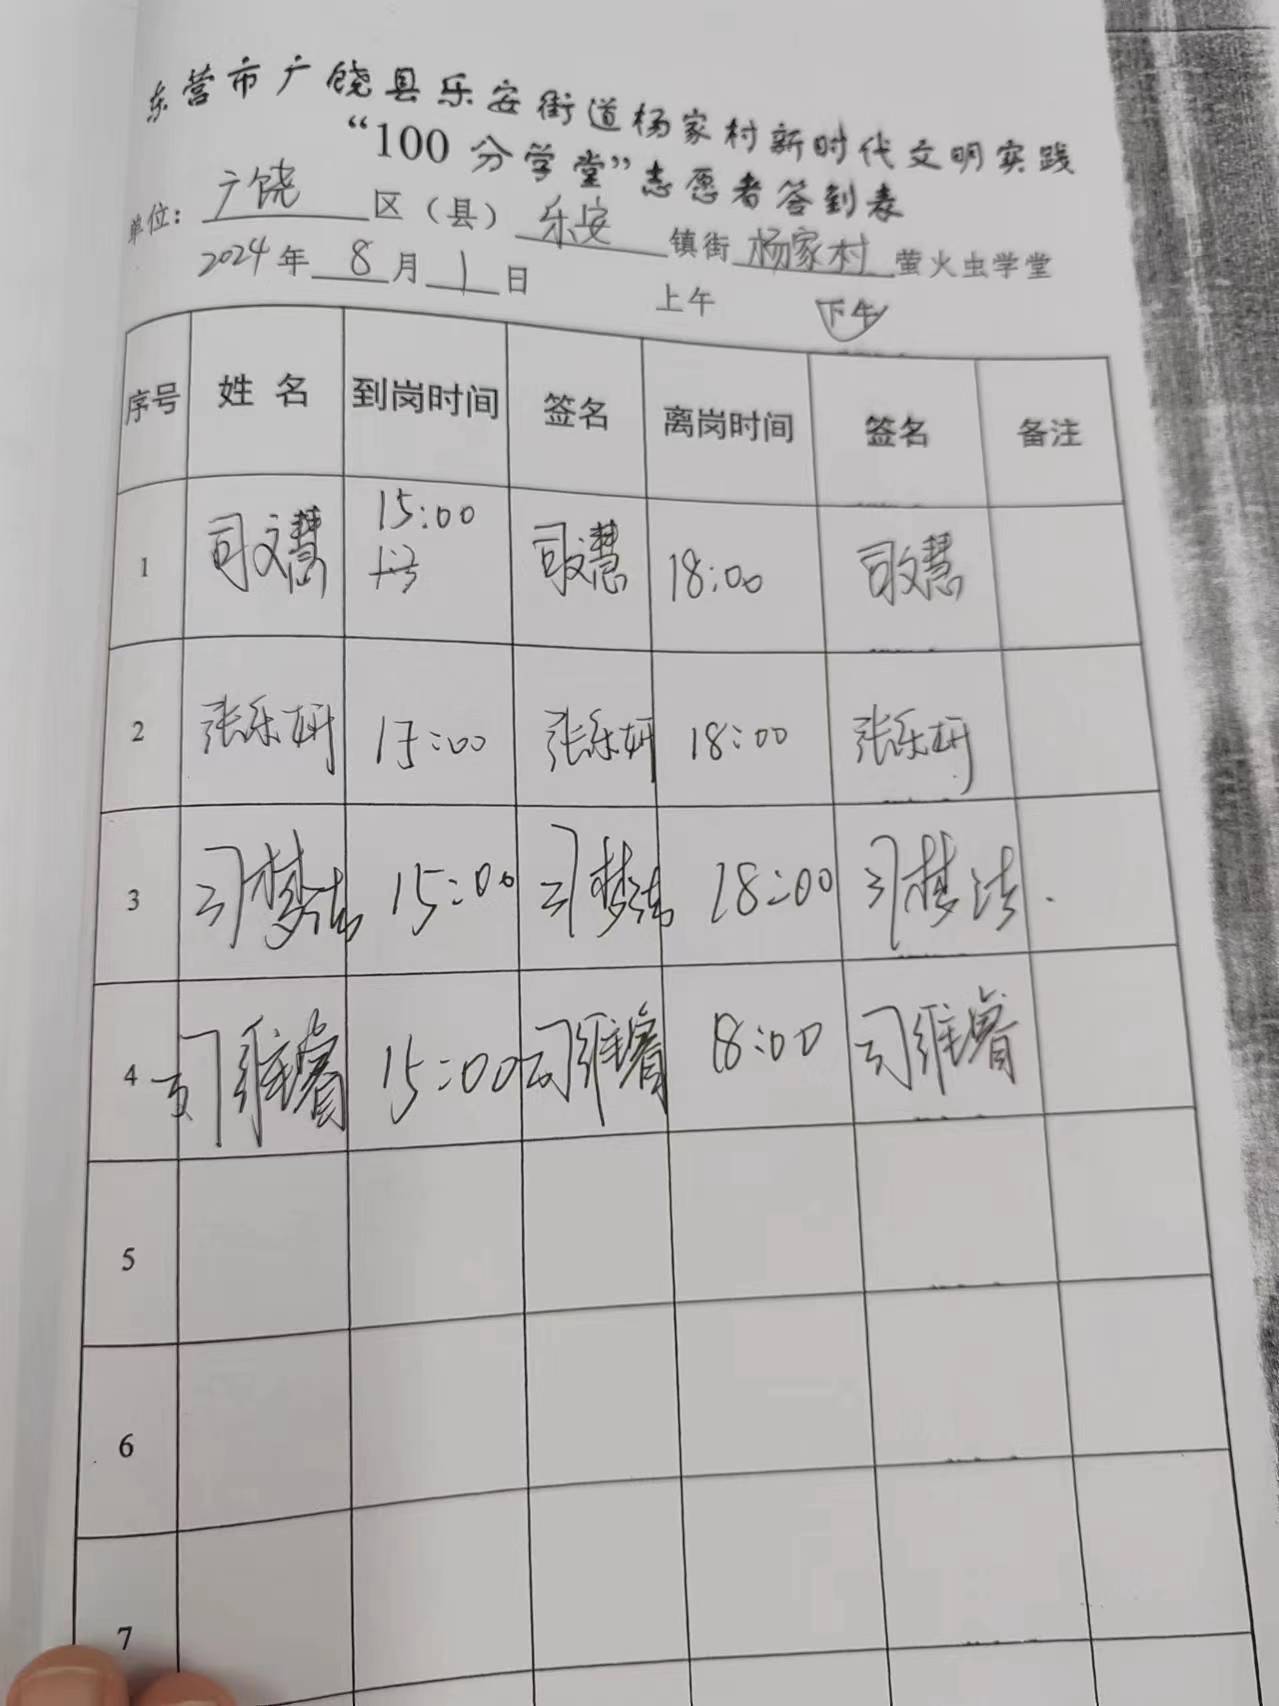 东营市广饶县乐安街道杨家村新时代文明实践
“100分学堂”志愿者签到表
单位：广饶区（县）乐安镇街杨家村萤火虫学堂
2024年8月1日 上午 下午
序号 姓名 到岗时间 签名 离岗时间 签名 备注
1 司文慧 15:00 司文慧 18:00 司文慧
2 张乐妍 15:00 张乐妍 18:00 张乐妍
3 司梦洁 15:00 司梦洁 18:00 司梦洁
4 司维睿 15:00 司维睿 18:00 司维睿
5
6
7